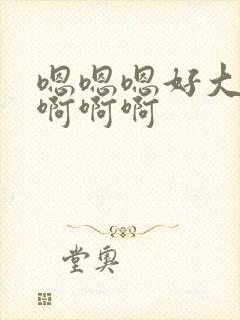 嗯嗯嗯好大
啊啊啊
堂奥